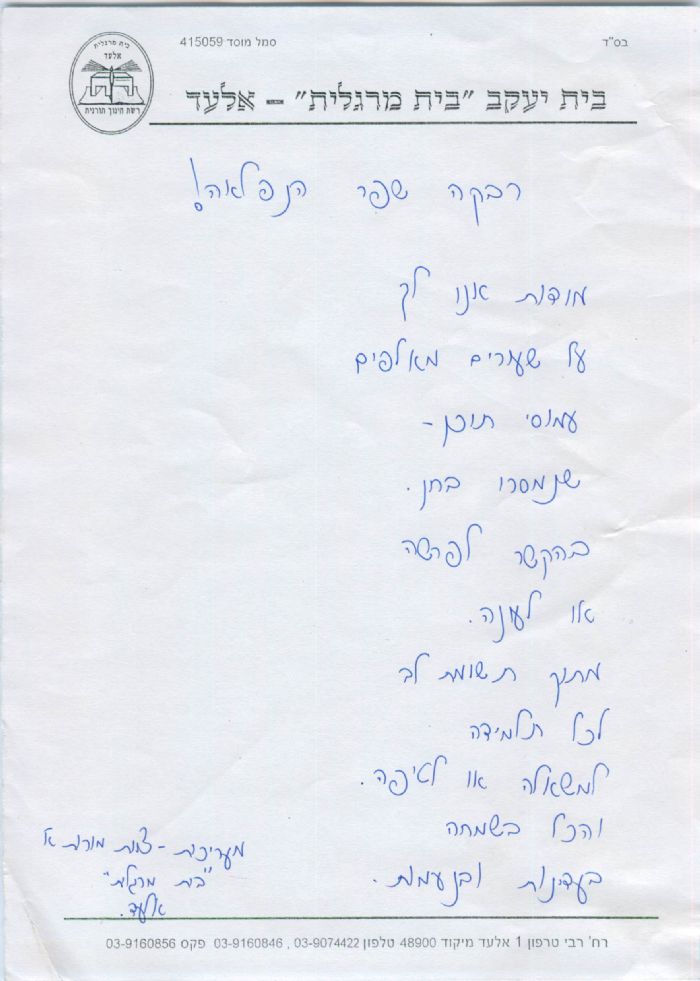 בס"ד
סמל מוסד 415059
בית מרגלית
אלעד
רשת חינוך תורנית
בית יעקב "בית מרגלית" – אלעד
רבקה שפר הנפלאה!
מודות אנו לך
על שעורים מאלפים
עמוסי תוכן -
שנמסרו בחן.
בהקשר לפרשה
או לעונה.
מתוך תשומת לב
לכל תלמידה
למשאלה או לטיפה.
והכל בשמחה
בעדינות ובנעמות.
מעריכות - צוות מורות א'
"בית מרגלית"
אלעד.
רח' רבי טרפון 1 אלעד מיקוד 48900 טלפון 03-9074422 , 03-9160846 פקס 03-9160856